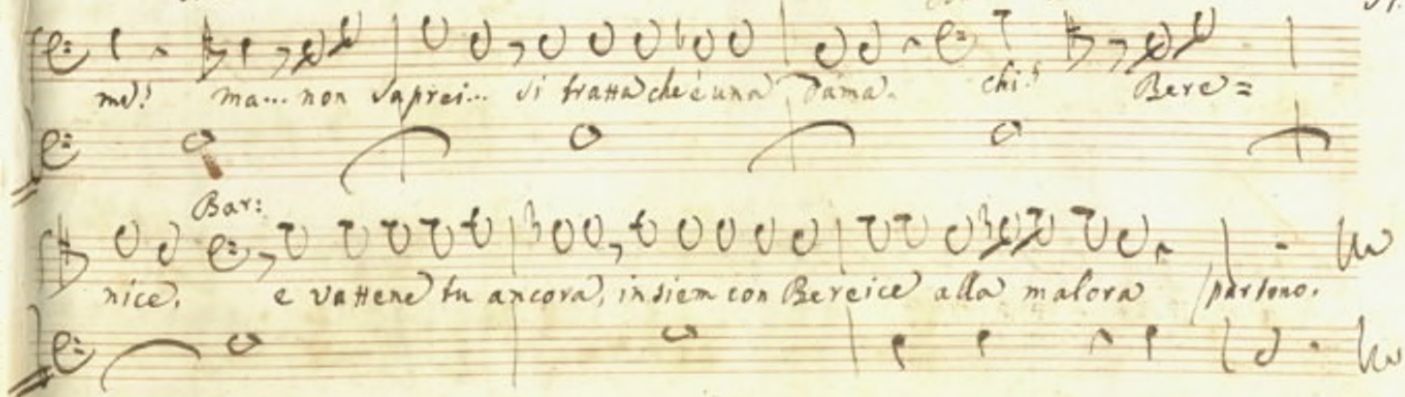 mo! ma... non saprei... si tratta che è una Dama. chi! Bere=
Bar:
nice. e vattene tu ancora, insiem con Bereice alla malora partono.